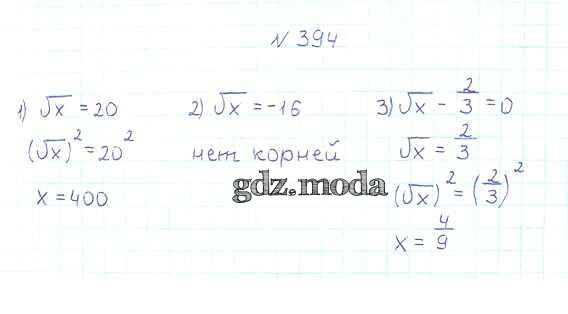 N 394
1) √x = 20
(√x)² = 20²
x = 400
2) √x = -16
нет корней
3) √x - 2/3 = 0
√x = 2/3
(√x)² = (2/3)²
x = 4/9
gdz.moda